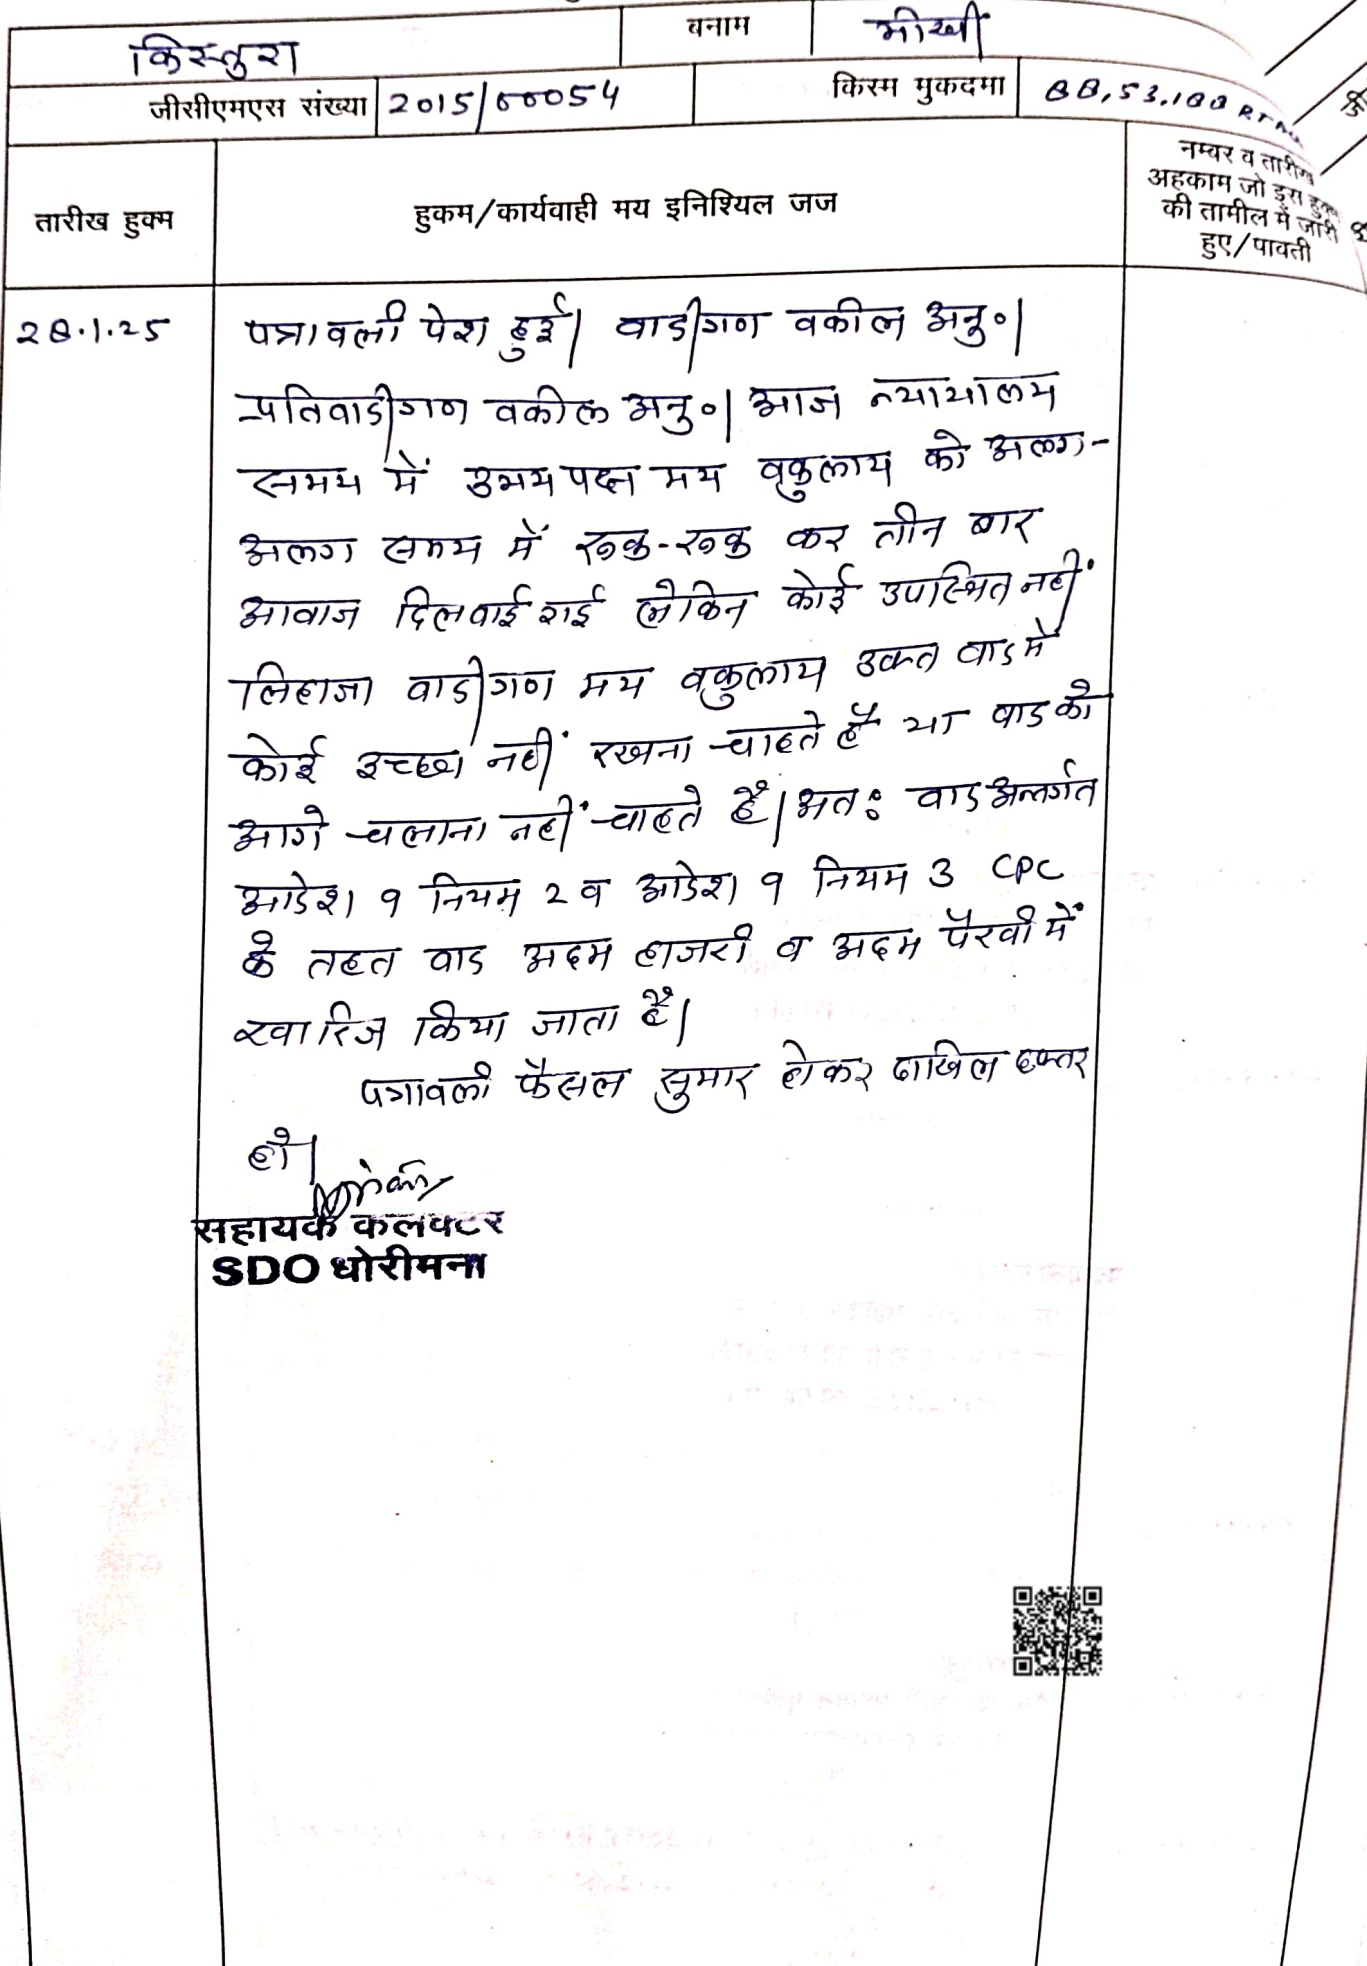 किस्तुरा बनाम भीखी
जीसीएमएस संख्या 2015/00054 किस्म मुकदमा 88,53,188 RTA
तारीख हुक्म
हुकम/कार्यवाही मय इनिश्यिल जज
नम्बर व तारीख
अहकाम जो इस हुक्म
की तामील में जारी
हुए/पावती
28.1.25
पत्रावली पेश हुई। वादीगण वकील अनु०।
प्रतिवादीगण वकील अनु०। आज न्यायालय
समय में उभयपक्ष मय वकुलाय को अलग-
अलग समय में रूक-रूक कर तीन बार
आवाज दिलवाई गई लेकिन कोई उपस्थित नहीं
लिहाजा वादीगण मय वकुलाय उक्त वाद में
कोई इच्छा नहीं रखना चाहते है या वाद को
आगे चलाना नहीं चाहते है। अतः वाद अन्तर्गत
आदेश 9 नियम 2 व आदेश 9 नियम 3 CPC
के तहत वाद अदम हाजरी व अदम पैरवी में
खारिज किया जाता है।
पत्रावली फैसल सुमार होकर दाखिल दफ्तर
हो।
सहायक कलक्टर
SDO धोरीमना